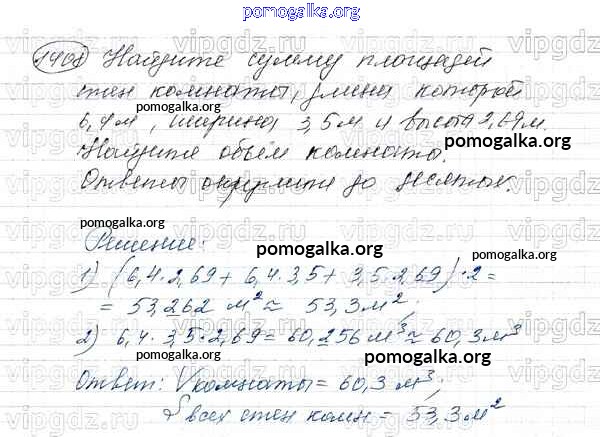 pomogalka.org
1408 Найдите сумму площадей
стен комнаты, длина которой
pomogalka.org pomogalka.org
6,4 м, ширина 3,5 м и высота 2,69 м.
pomogalka.org
Найдите объём комнаты.
Ответы округлите до десятых.
pomogalka.org
Решение:
pomogalka.org
1) (6,4·2,69 + 6,4·3,5 + 3,5·2,69)·2 =
= 53,262 м² ≈ 53,3 м²;
2) 6,4·3,5·2,69 = 60,256 м³ ≈ 60,3 м³
pomogalka.org pomogalka.org
Ответ: V комнаты = 60,3 м³;
S всех стен комн = 53,3 м²